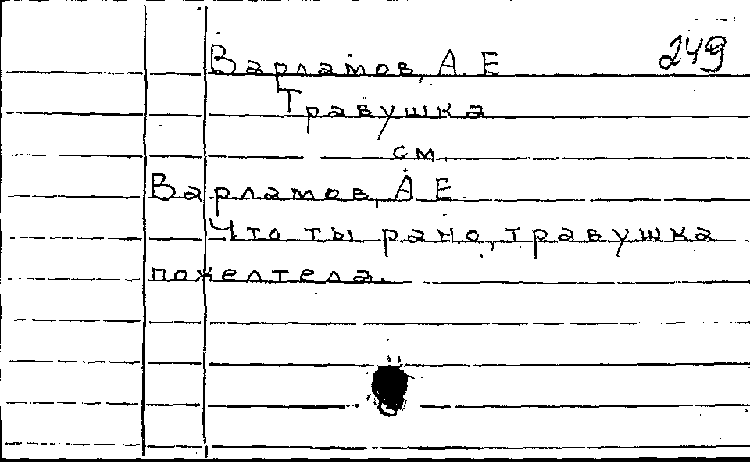 249
Варламов, А. Е
Травушка
см.
Варламов, А Е
Что ты рано, травушка
пожелтела.